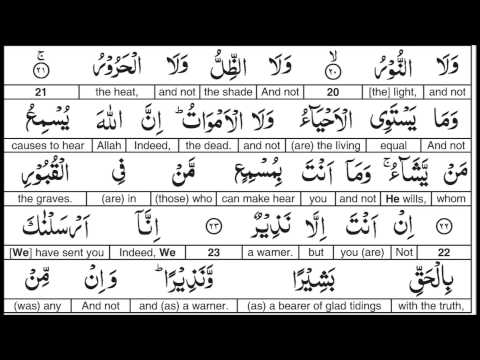 وَلَا النُّوْرُ ۙ ۲۰ وَلَا الظِّلُّ وَلَا الْحَرُوْرُ ۚ ۲۱
and not [the] light, 20 And not the shade and not the heat, 21
وَمَا يَسْتَوِى الْاَحْيَآءُ وَلَا الْاَمْوَاتُ ؕ اِنَّ اللّٰهَ يُسْمِعُ
And not equal (are) the living and not the dead. Indeed, Allah causes to hear
مَنْ يَّشَآءُ ۚ وَمَاۤ اَنْتَ بِمُسْمِعٍ مَّنْ فِى الْقُبُوْرِ
whom He wills, and not you can make hear (those) who (are) in the graves.
۲۲ اِنْ اَنْتَ اِلَّا نَذِيْرٌ ۲۳ اِنَّاۤ اَرْسَلْنٰكَ
22 Not you (are) but a warner. 23 Indeed, We [We] have sent you
بِالْحَقِّ بَشِيْرًا وَّنَذِيْرًا ؕ وَاِنْ مِّنْ
with the truth, (as) a bearer of glad tidings and (as) a warner. And not (was) any